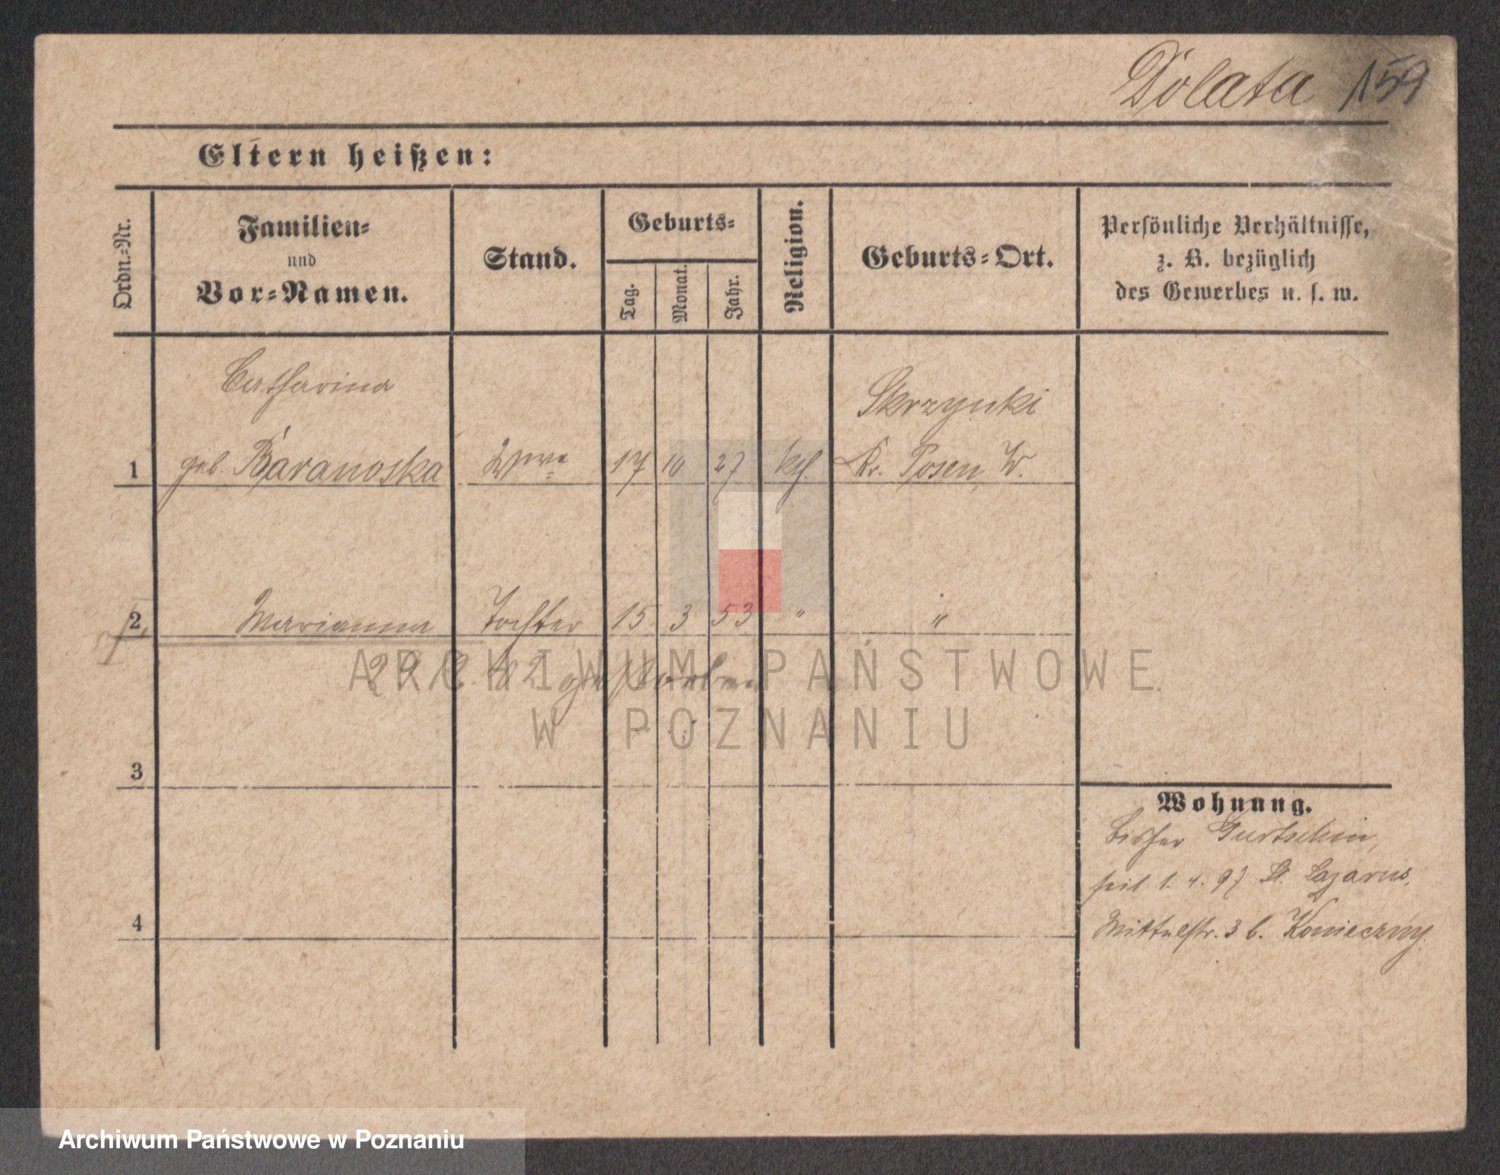 Dolata 159
Eltern heißen:
Ordn.-Nr.
Familien-
und
Vor-Namen.
Stand.
Geburts-
Tag.
Monat.
Jahr.
Religion.
Geburts-Ort.
Persönliche Verhältnisse,
z. B. bezüglich
des Gewerbes u. s. w.
Catharina
Skrzynki
1 geb. Baranoska Wwe 17 10 27 kth. Kr. Posen W.
2 Marianna Tochter 15 3 53 " "
02 gestorben
3
Wohnung.
bisher Gurtschin,
seit 1. 4. 97 St. Lazarus,
Mittelstr. 3 b. Konieczny.
4
ARCHIWUM PAŃSTWOWE
W POZNANIU
Archiwum Państwowe w Poznaniu